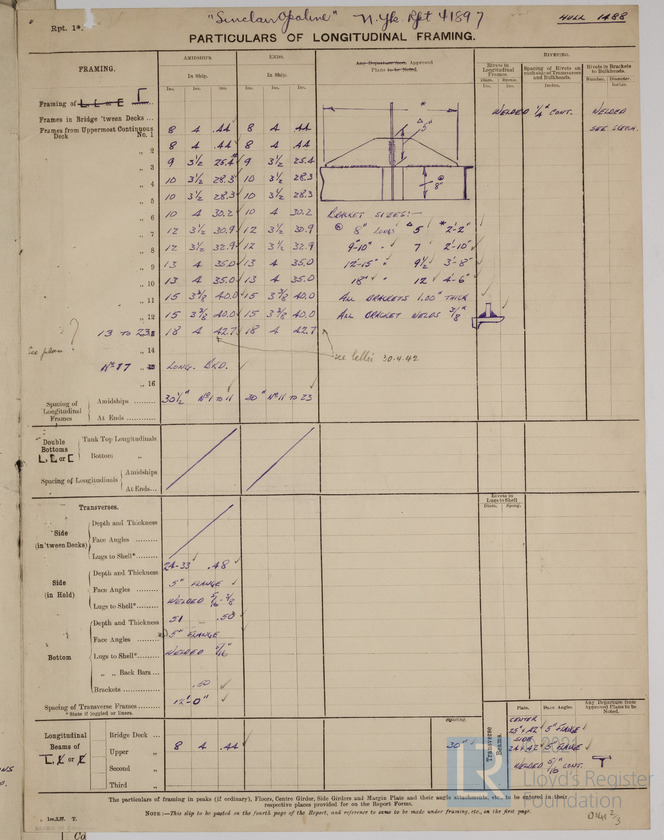 "Sinclair Opaline" N.Yk. Rpt 41897
HULL 1488
Rpt. 1*.
PARTICULARS OF LONGITUDINAL FRAMING.
FRAMING.
AMIDSHIPS.
In Ship.
ENDS.
In Ship.
Any Departure from Approved
Plans to be Noted.
RIVETING.
Rivets in Longitudinal Frames.
Spacing of Rivets on each side of Transverses and Bulkheads.
Rivets in Brackets to Bulkheads.
Ins. Ins. Ins. Ins. Ins. Ins.
Diam. Spcng. Inches. Number. Diameter.
Framing of L L or E
Frames in Bridge 'tween Decks ...
Frames from Uppermost Continuous
WELDED 1/4" CONT.
WELDED
SEE SKETCH.
Deck No. 1 8 4 .44 8 4 .44
" 2 8 4 .44 8 4 .44
" 3 9 3½ 25.4 9 3½ 25.4
" 4 10 3½ 28.3 10 3½ 28.3
" 5 10 3½ 28.3 10 3½ 28.3
" 6 10 4 30.2 10 4 30.2
" 7 12 3½ 30.9 12 3½ 30.9
" 8 12 3½ 32.9 12 3½ 32.9
" 9 13 4 35.0 13 4 35.0
" 10 13 4 35.0 13 4 35.0
" 11 15 3⅜ 40.0 15 3⅜ 40.0
" 12 15 3⅜ 40.0 15 3⅜ 40.0
13 TO 23 18 4 42.7 18 4 42.7
5"
8"
BRACKET SIZES:—
8" LONGS 5 2'-2"
9"-10" " 7 2'-10"
12"-15" " 9½ 3'-8"
18" " 12 4'-6"
ALL BRACKETS 1.00" THICK
ALL BRACKET WELDS 3/8"
see letter 30.4.42
see plan
" 14
Nº 17 LONG. BHD.
" 16
Spacing of Longitudinal Frames
Amidships 30½" Nº 1 TO 11 30" Nº 11 TO 23
At Ends ...
Double Bottoms L, L or C
Tank Top Longitudinals
Bottom "
Spacing of Longitudinals
Amidships
At Ends...
Rivets in Lugs to Shell
Diam. Spcng.
Transverses.
Side (in 'tween Decks)
Depth and Thickness
Face Angles
Lugs to Shell*
Side (in Hold)
Depth and Thickness 24-33 .48
Face Angles 5" FLANGE
Lugs to Shell* WELDED 5/16-3/8
Bottom
Depth and Thickness 51 .50
Face Angles 5" FLANGE
Lugs to Shell* WELDED
" " Back Bars ...
Brackets .50
Spacing of Transverse Frames 12'-0"
* State if joggled or liners.
Longitudinal Beams of L, L or L
Bridge Deck ...
Upper " 8 4 .44
Second "
Third "
Spacing.
30"
Transverse Beams.
Plate. Face Angles. Any Departure from Approved Plans to be Noted.
CENTER
5" FLANGE
SIDE
5" FLANGE
WELDED 5/16 CONT.
2021
LR
Lloyd's Register
Foundation
The particulars of framing in peaks (if ordinary), Floors, Centre Girder, Side Girders and Margin Plate and their angle attachments, etc., to be entered in their
respective places provided for on the Report Forms.
NOTE:—This slip to be pasted on the fourth page of the Report, and reference to same to be made under framing, etc., on the first page.